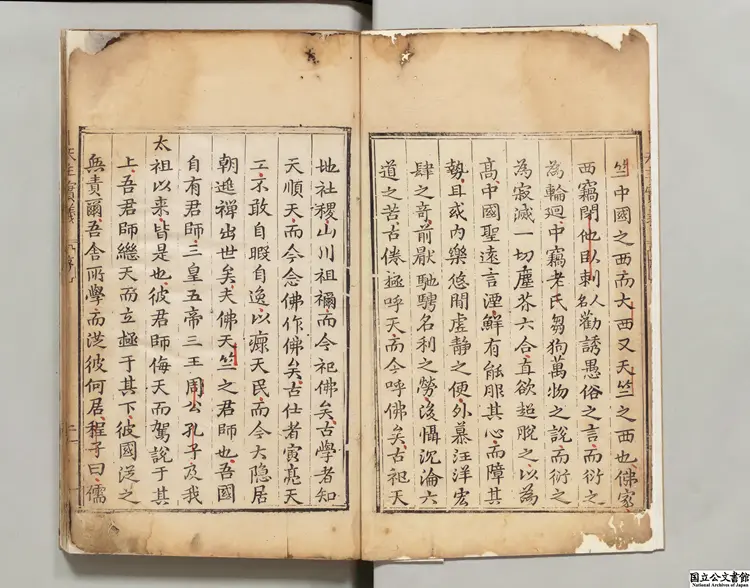 竺中國之西而大西又天竺之西也佛家
西竊閉他臥剌人名勸誘愚俗之言而衍之
為輪廻中竊老氏芻狗萬物之說而衍之
為寂滅一切塵芥六合直欲超脫之以為
高中國聖遠言湮鮮有能服其心而障其
勢且或內樂悠閒虛靜之便外慕汪洋宏
肆之奇前厭馳騁名利之勞後懾沉淪六
道之苦古倦極呼天而今呼佛矣古祀天
地社稷山川祖禰而今祀佛矣古學者知
天順天而今念佛作佛矣古仕者寅亮天
工不敢自暇自逸以瘝天民而今大隱居
朝逃禪出世矣夫佛天竺之君師也吾國
自有君師三皇五帝三王周公孔子及我
太祖以來皆是也彼君師侮天而駕說于其
上吾君師繼天而立極于其下彼國從之
無責爾吾舍所學而從彼何居程子曰儒
国立公文書館
National Archives of Japan